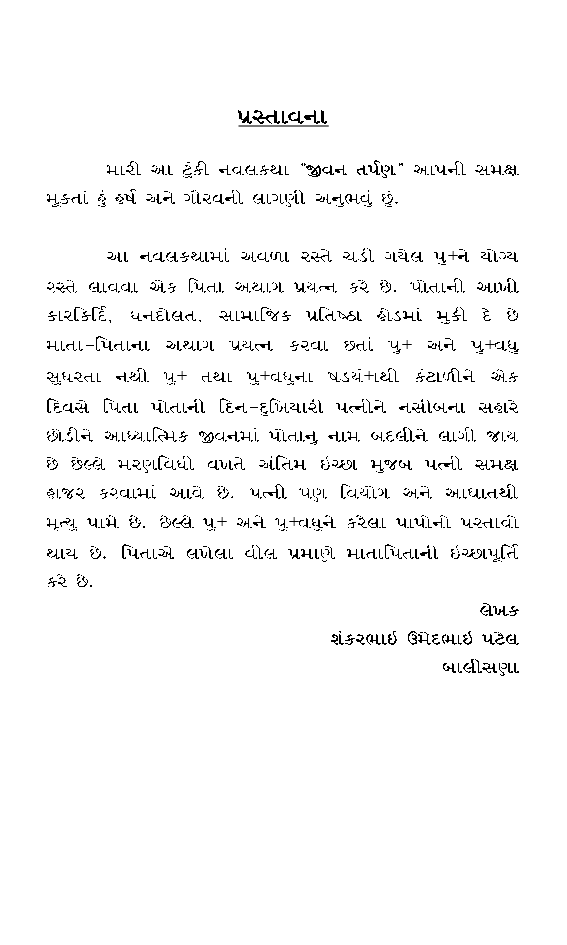 પ્રસ્તાવના
મારી આ ટુંકી નવલકથા "જીવન તર્પણ" આપની સમક્ષ
મુકતાં હું હર્ષ અને ગૌરવની લાગણી અનુભવું છું.
આ નવલકથામાં અવળા રસ્તે ચડી ગયેલ પુ+ને યોગ્ય
રસ્તે લાવવા એક પિતા અથાગ પ્રયત્ન કરે છે. પોતાની આખી
કારકિર્દિ, ધનદોલત, સામાજિક પ્રતિષ્ઠા હોડમાં મુકી દે છે
માતા-પિતાના અથાગ પ્રયત્ન કરવા છતાં પુ+ અને પુ+વધુ
સુધરતા નથી પૂ+ તથા પુ+વધુના ષડયં+ાથી કંટાળીને એક
દિવસે પિતા પોતાની દિન-દુખિયારી પત્નીને નસીબના સહારે
છોડીને આધ્યાત્મિક જીવનમાં પોતાનુ નામ બદલીને લાગી જાય
છે છેલ્લે મરણવિધી વખતે અંતિમ ઇચ્છા મુજબ પત્ની સમક્ષ
હાજર કરવામાં આવે છે. પત્ની પણ વિયોગ અને આઘાતથી
મૃત્યુ પામે છે. છેલ્લે પુ+ અને પૂ+વધુને કરેલા પાપોનો પસ્તાવો
થાય છે. પિતાએ લખેલા વીલ પ્રમાણે માતાપિતાની ઇચ્છાપૂર્તિ
કરે છે.
લેખક
શંકરભાઇ ઉમેદભાઇ પટેલ
બાલીસણા